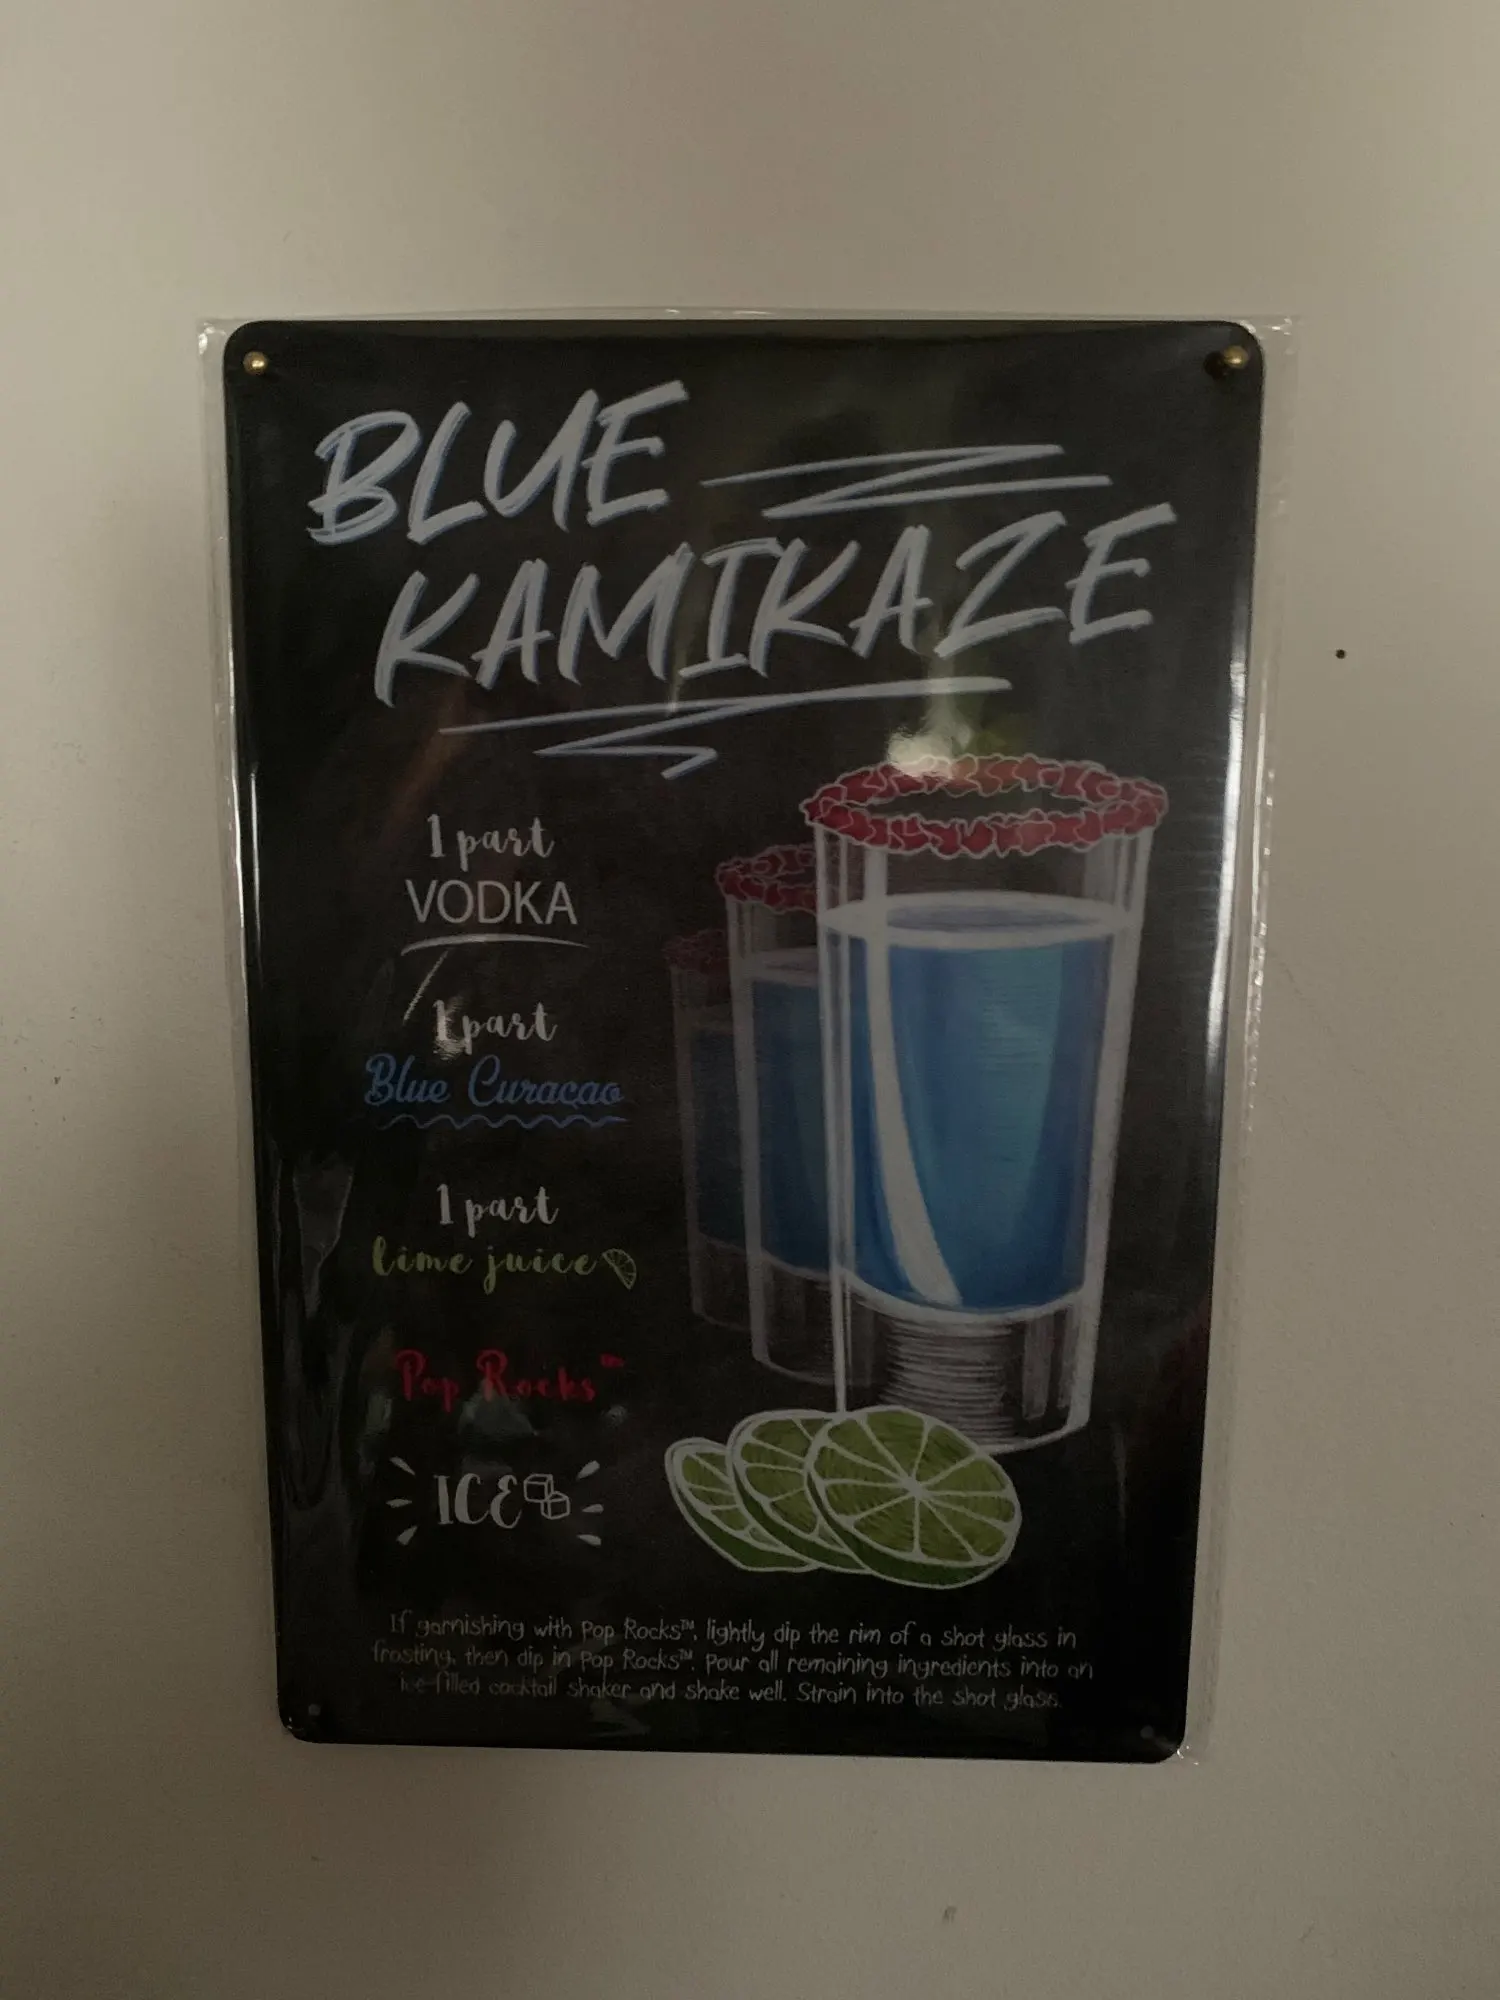 BLUE
KAMIKAZE
1 part
VODKA
1 part
Blue Curacao
1 part
lime juice
Pop Rocks™
ICE
If garnishing with Pop Rocks™, lightly dip the rim of a shot glass in
frosting, then dip in Pop Rocks™. Pour all remaining ingredients into an
ice-filled cocktail shaker and shake well. Strain into the shot glass.